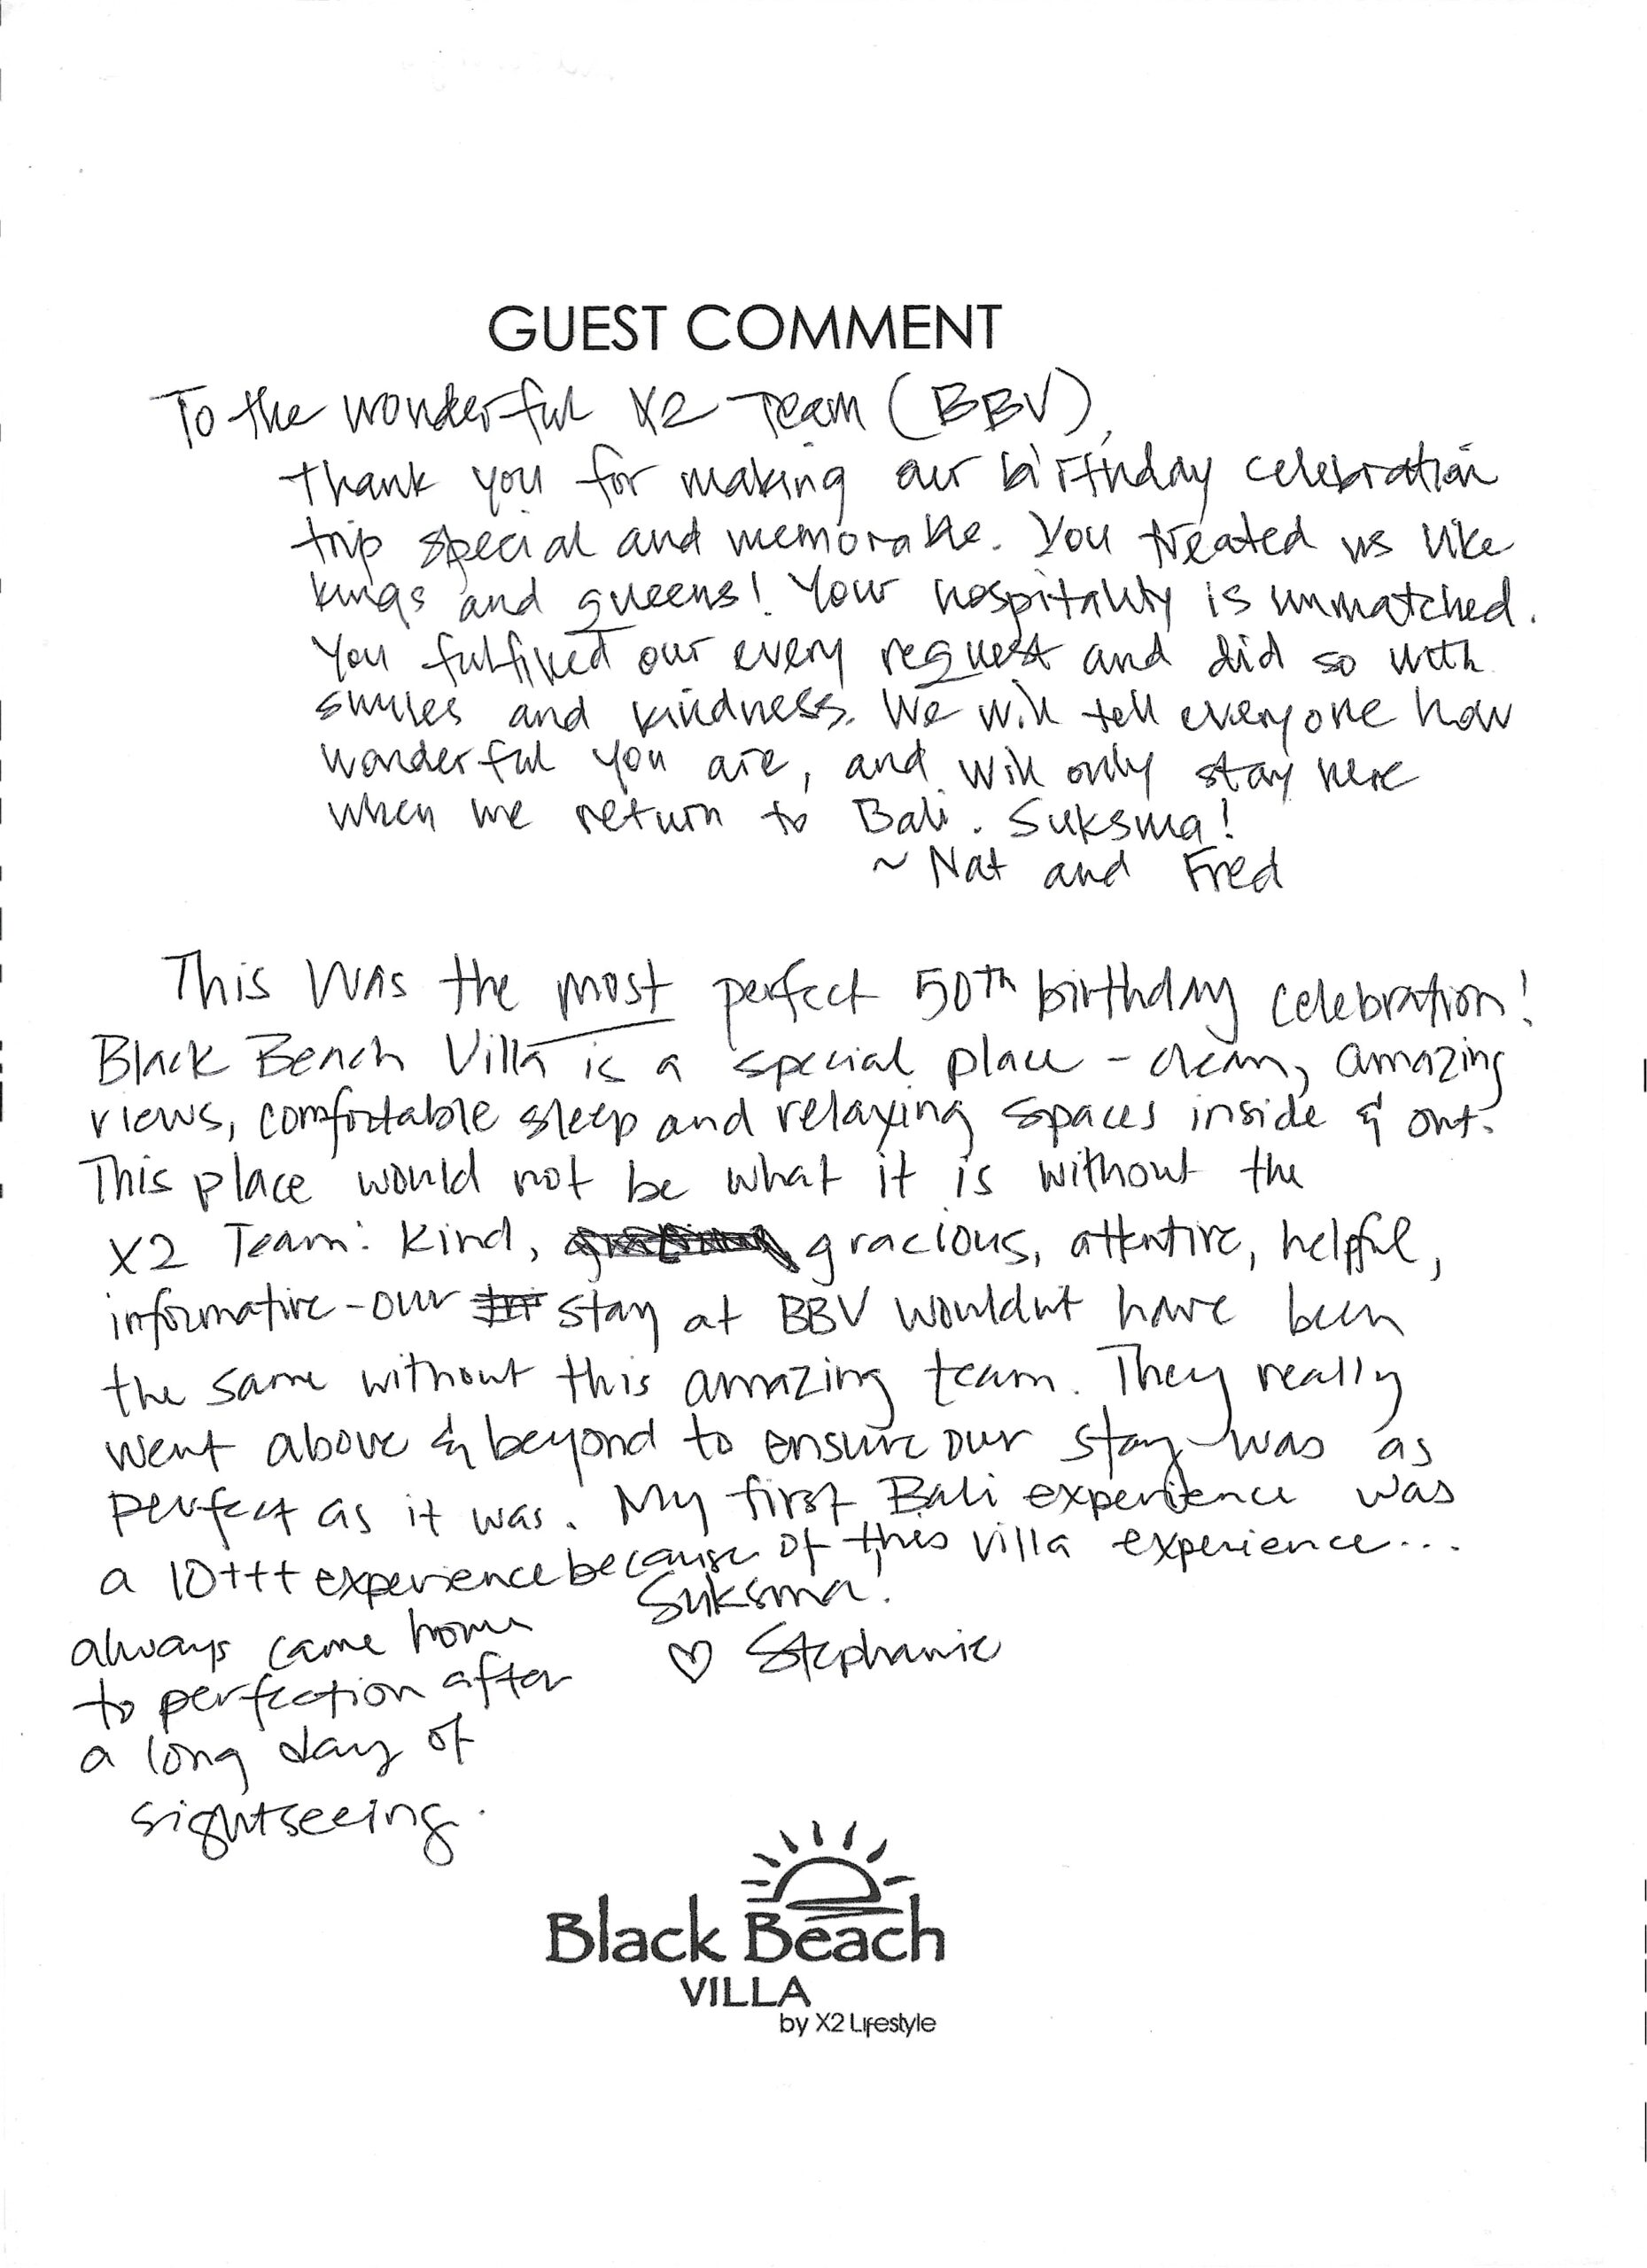 GUEST COMMENT
To the wonderful X2 Team (BBV),
Thank you for making our birthday celebration
trip special and memorable. You treated us like
kings and queens! Your hospitality is unmatched.
You fulfilled our every request and did so with
smiles and kindness. We will tell everyone how
wonderful you are, and will only stay here
when we return to Bali. Suksma!
~ Nat and Fred
This was the most perfect 50th birthday celebration!
Black Beach Villa is a special place - clean, amazing
views, comfortable sleep and relaxing spaces inside & out.
This place would not be what it is without the
X2 Team: Kind, gracious, attentive, helpful,
informative - our stay at BBV wouldnt have been
the same without this amazing team. They really
went above & beyond to ensure our stay was as
perfect as it was. My first Bali experience was
a 10+++ experience because of this villa experience...
always came home
to perfection after
a long day of
sightseeing.
Suksma!
♡ Stephanie
Black Beach
VILLA
by X2 Lifestyle